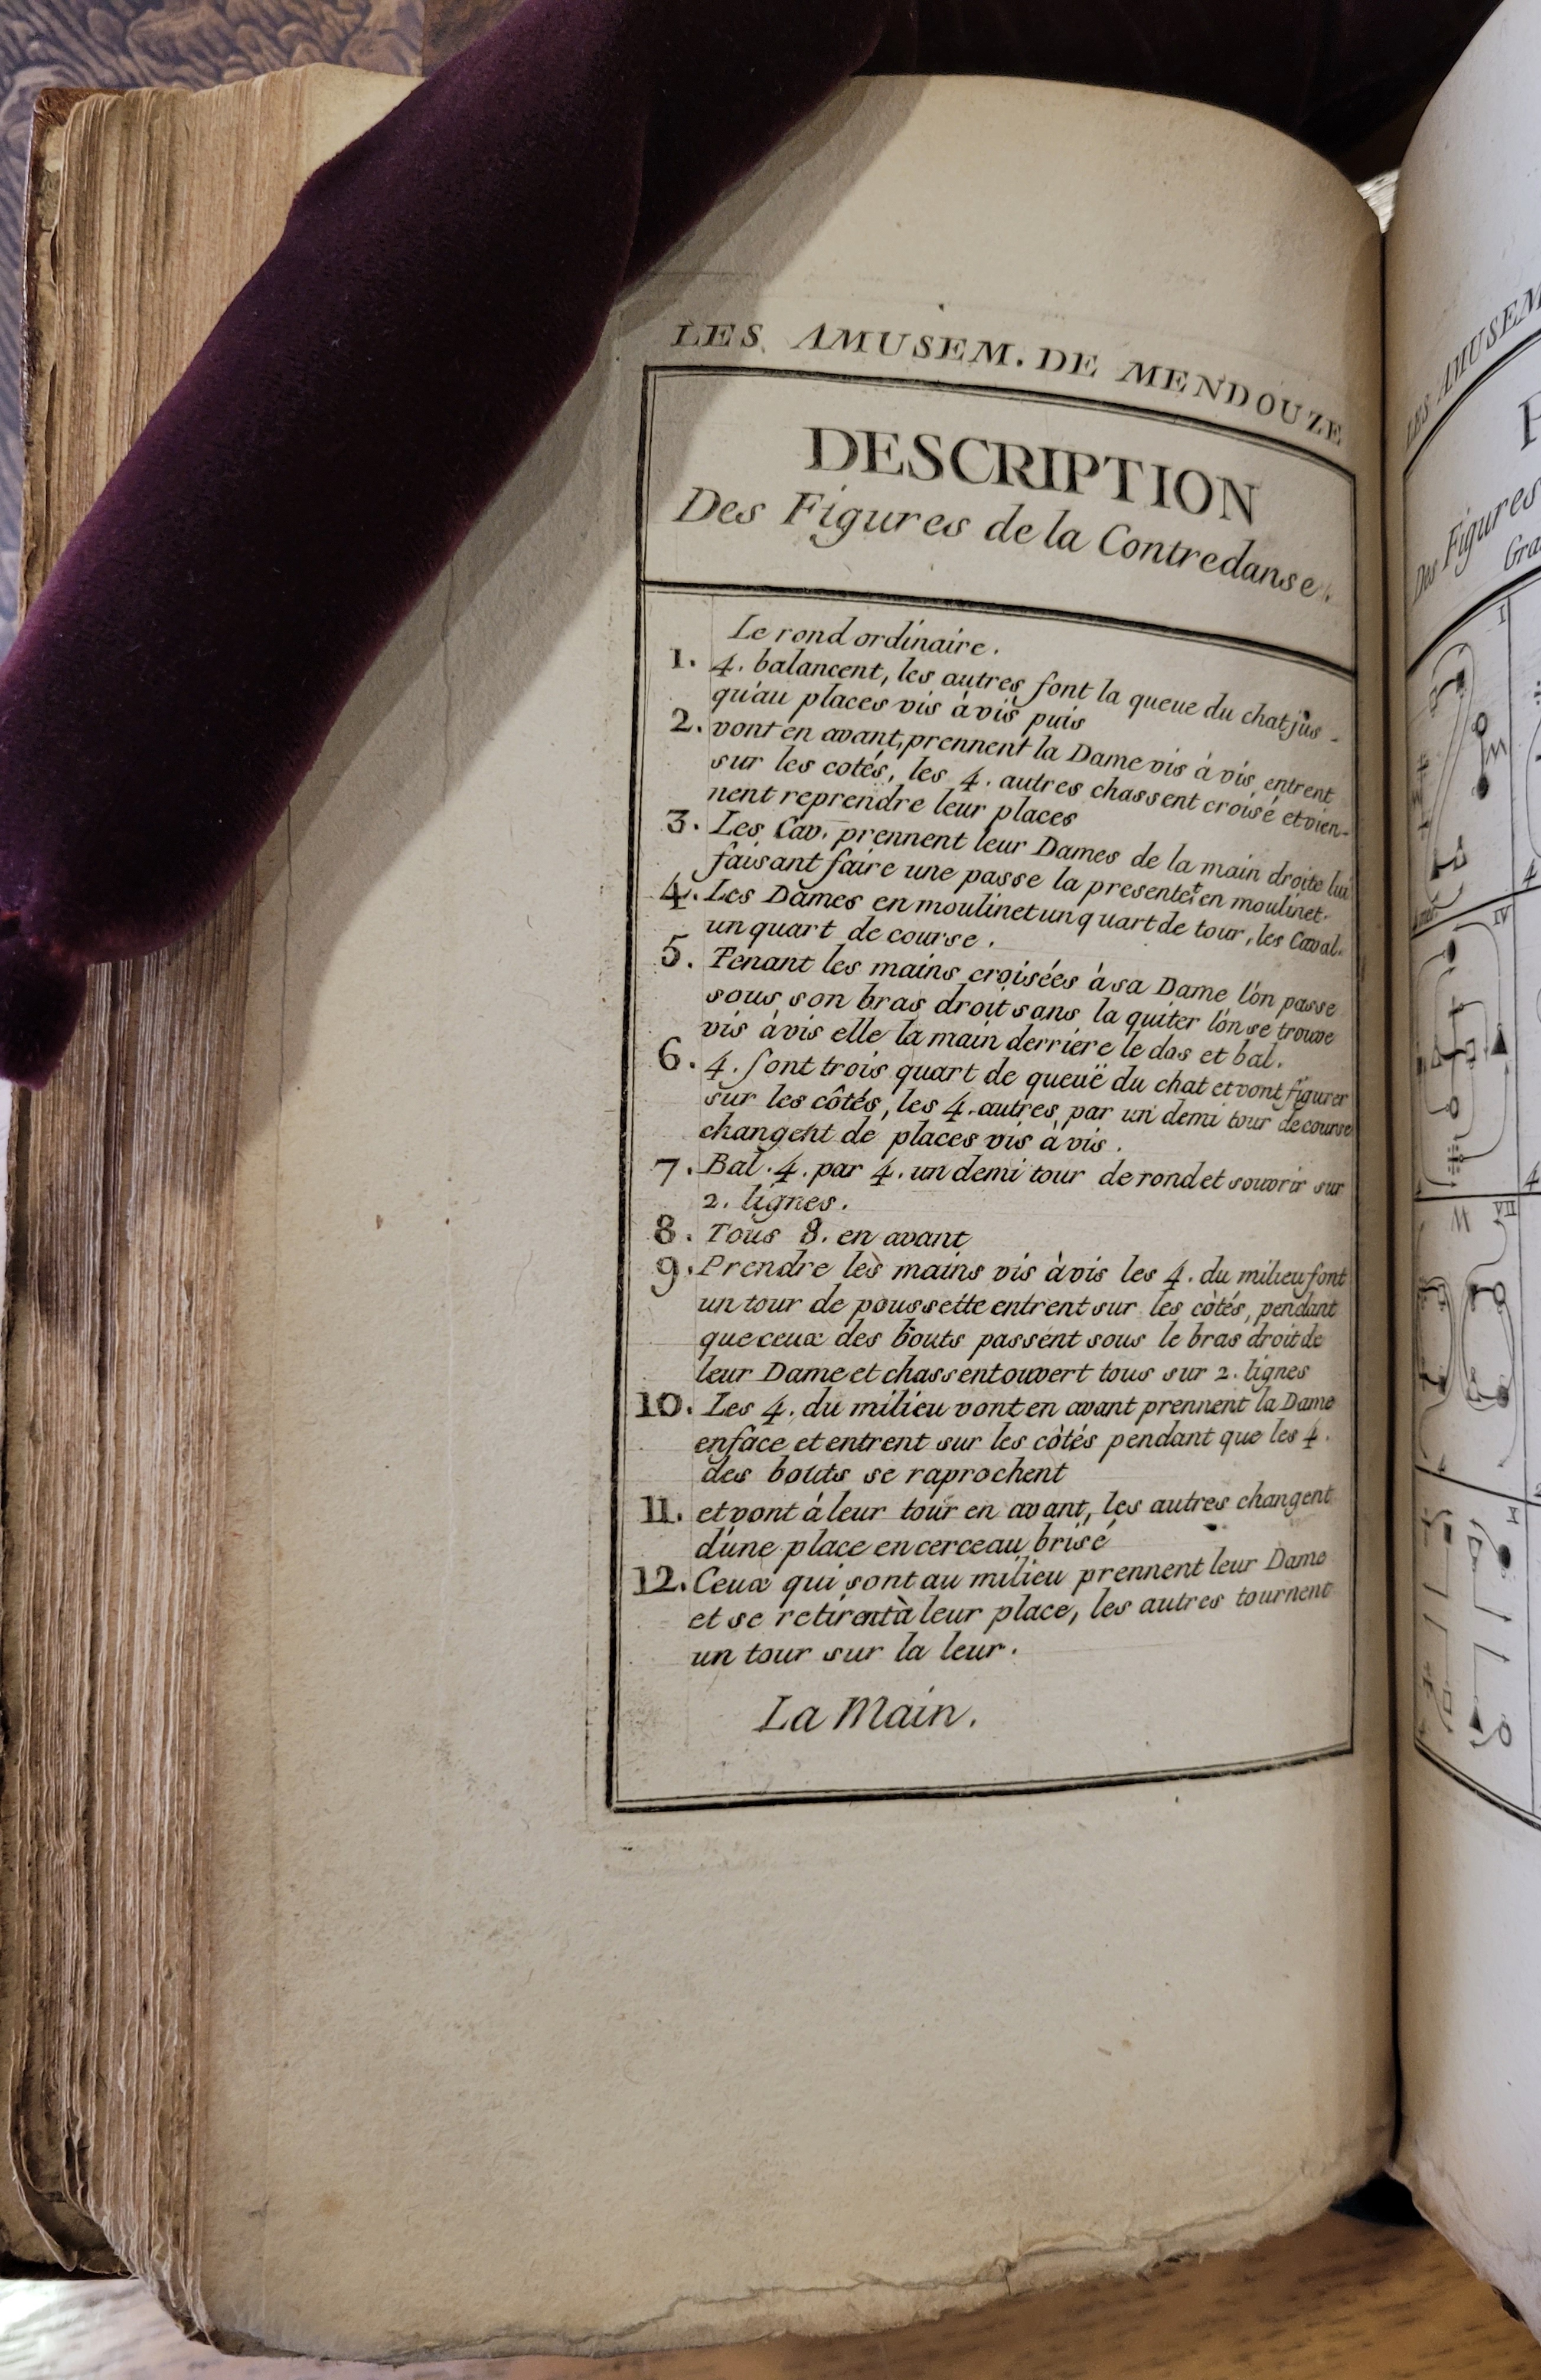 LES AMUSEM. DE MENDOUZE
DESCRIPTION
Des Figures de la Contredanse.
Le rond ordinaire.
1. 4. balancent, les autres font la queue du chat jus-
qu'au places vis à vis puis
2. vont en avant, prennent la Dame vis à vis, entrent
sur les cotés, les 4. autres chassent croisé et vien-
nent reprendre leur places
3. Les Cav. prennent leur Dames de la main droite lui
faisant faire une passe la presente.t en moulinet.
4. Les Dames en moulinet un quart de tour, les Caval.
un quart de course.
5. Tenant les mains croisées à sa Dame l'on passe
sous son bras droit sans la quiter l'on se trouve
vis à vis elle la main derriere le dos et bal.
6. 4. font trois quart de queuë du chat et vont figurer
sur les côtés, les 4. autres par un demi tour de course
changent de places vis à vis.
7. Bal. 4. par 4. un demi tour de rond et souvrir sur
2. lignes.
8. Tous 8. en avant
9. Prendre les mains vis à vis les 4. du milieu font
un tour de poussette entrent sur les côtés, pendant
que ceux des bouts passent sous le bras droit de
leur Dame et chassent ouvert tous sur 2. lignes
10. Les 4. du milieu vont en avant prennent la Dame
enface et entrent sur les côtés pendant que les 4.
des bouts se raprochent
11. et vont à leur tour en avant, les autres changent
d'une place en cerceau brisé
12. Ceux qui sont au milieu prennent leur Dame
et se retirent à leur place, les autres tournent
un tour sur la leur.
La Main.
LES AMUSEM
Des Figures
Gra
I
4
IV
4
VII